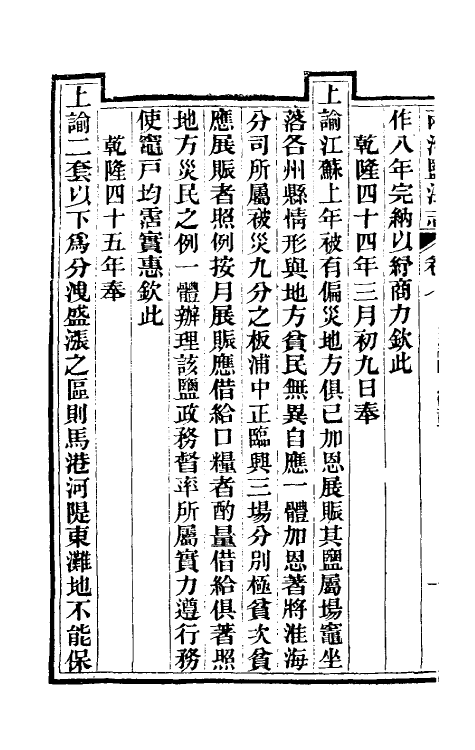 作八年完納以紓商力欽此
乾隆四十四年三月初九日奉
上諭江蘇上年被有偏災地方俱已加恩展賑其鹽屬場竈坐
落各州縣情形與地方貧民無異自應一體加恩著將淮海
分司所屬被災九分之板浦中正臨興三場分別極貧次貧
應展賑者照例按月展賑應借給口糧者酌量借給俱著照
地方災民之例一體辦理該鹽政務督率所屬實力遵行務
使竈戸均霑實惠欽此
乾隆四十五年奉
上諭二套以下爲分洩盛漲之區則馬港河隄東灘地不能保